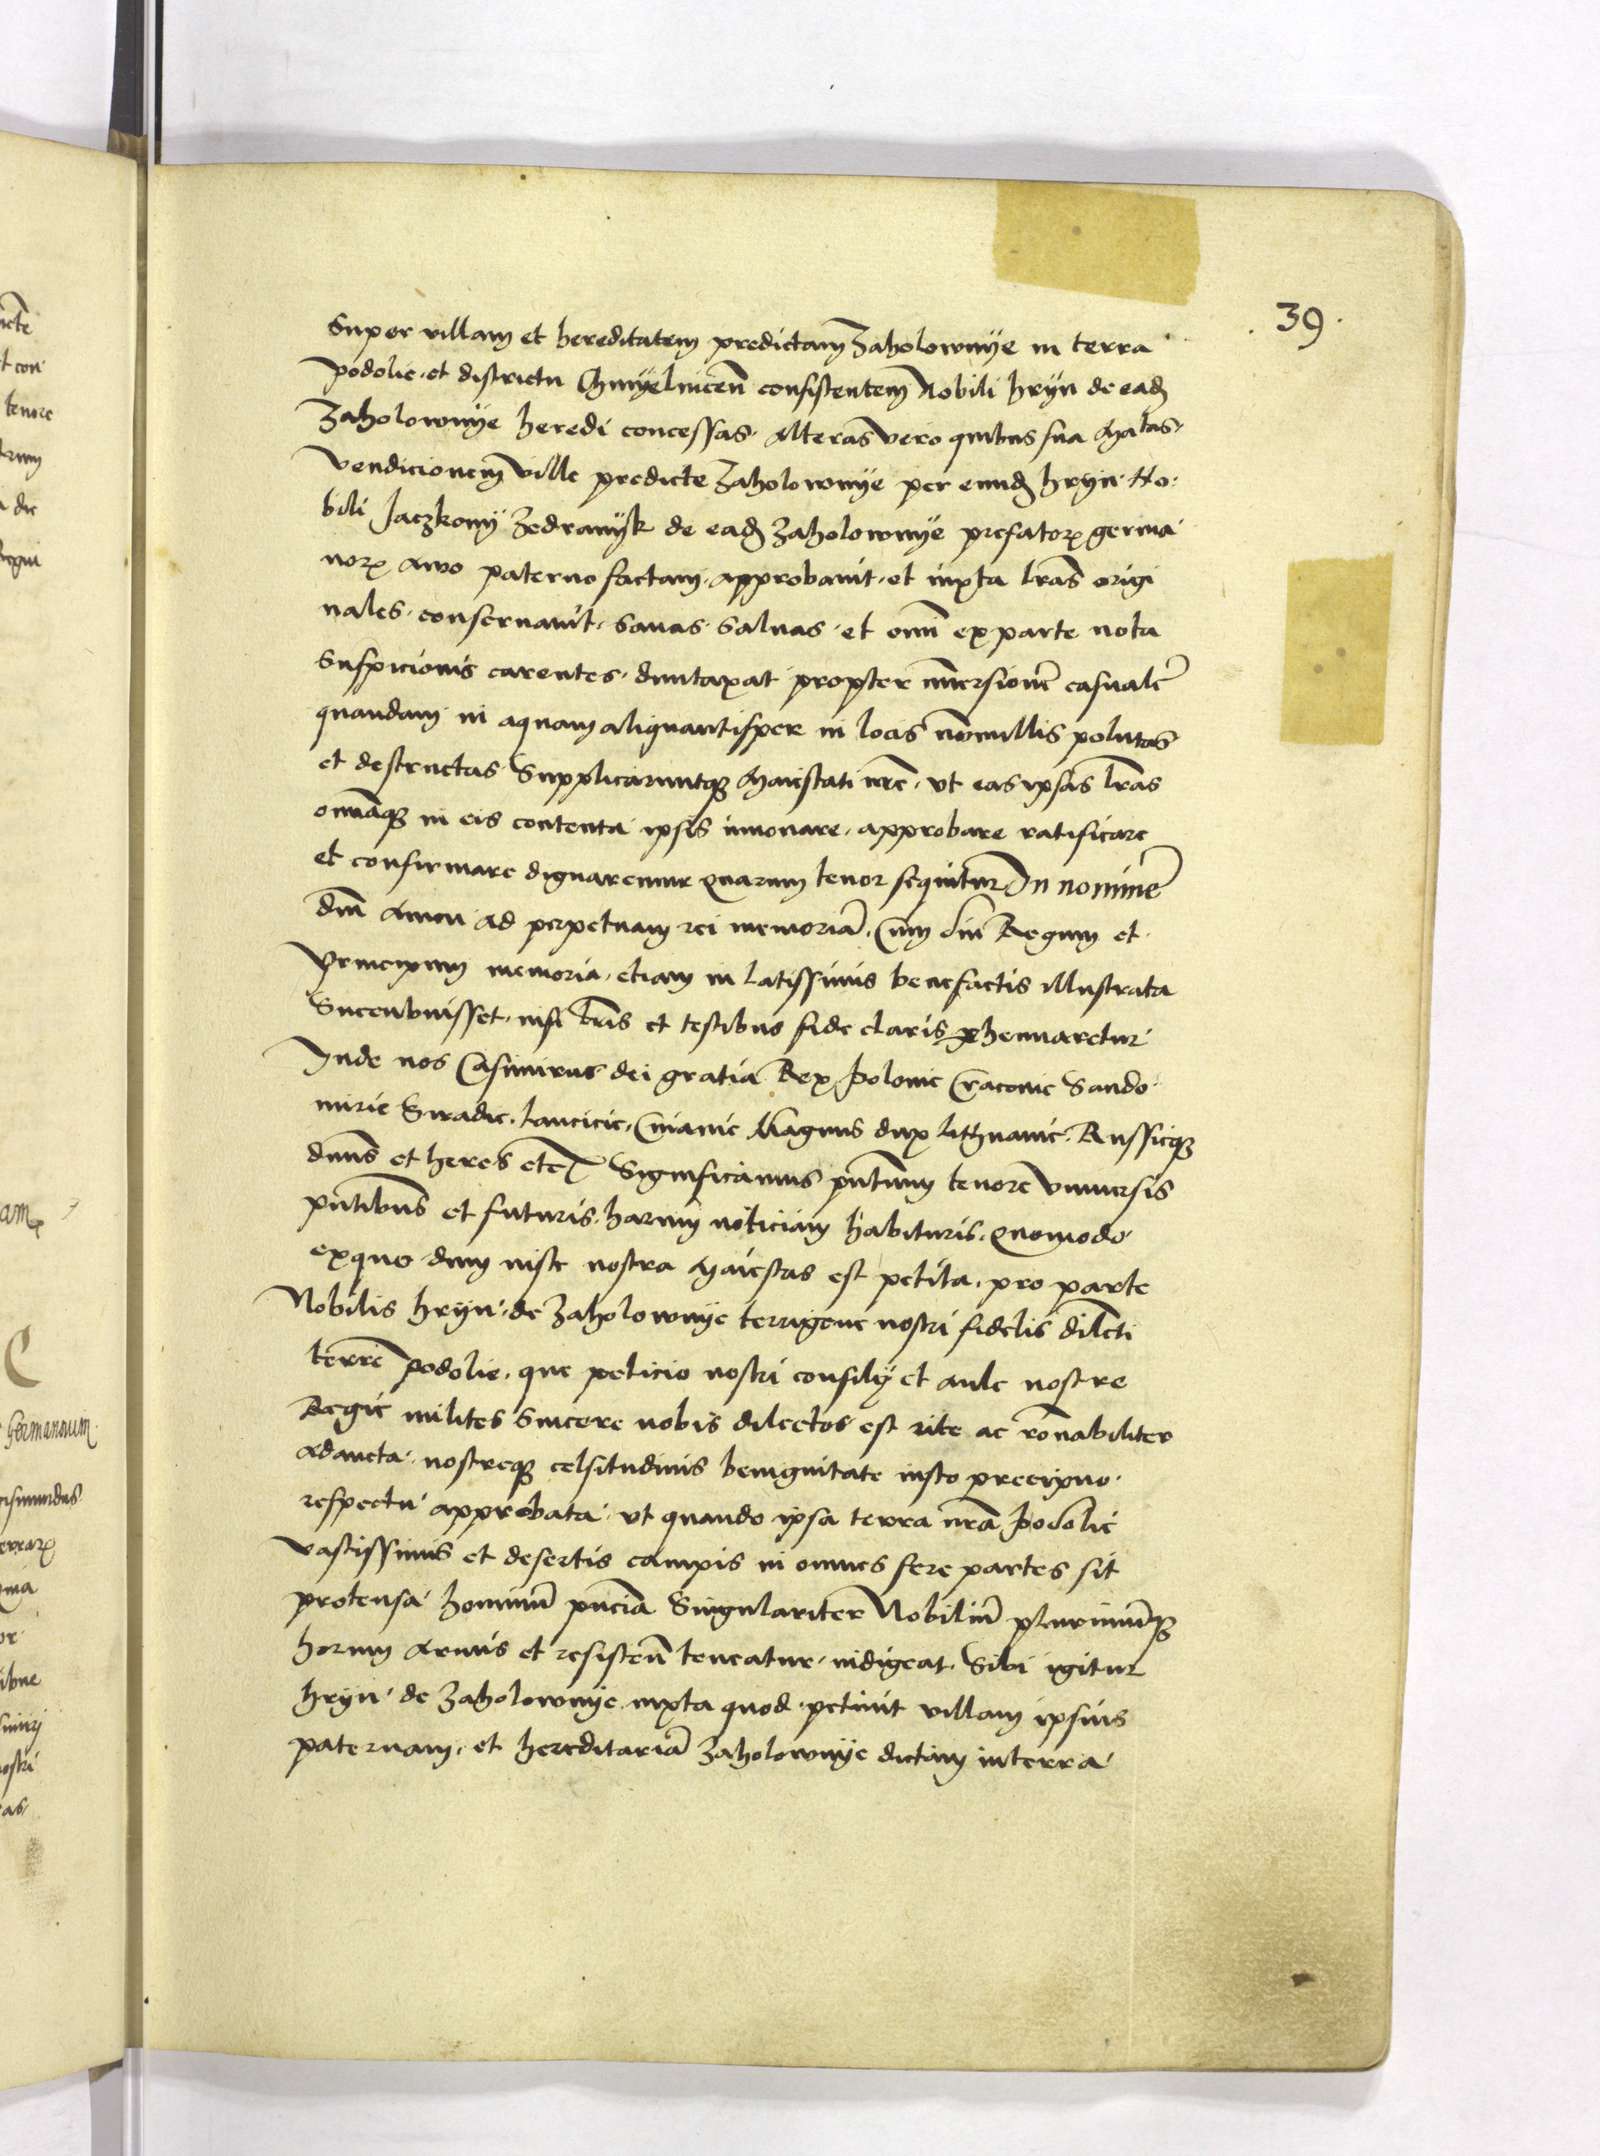 39
Super villam et hereditatem predictam Zaholownye in terra
podolie et districtu Chmyelnicen̄ consistentem Nobili hryn de ead
Zaholownye heredi concessas. Alteras vero quibus sua Ma̅tas
vendicionem ville predicte Zaholownye per eund hryn No-
bili Jaczkony Zedranysk de ead Zaholownye prefatoꝝ germa
noꝝ avo paterno factam approbavit et iuxta lr̅as origi
nales conservavit. Sanas Salvas et omi̅ ex parte nota
Suspicionis carentes duntaxat propter imersione̅ casuale̅
quandam in aquam aliquantisper in locis no̅nullis polutas
et destructas Supplicaruntqꝫ Maiestati nr̅e ut eas ipsas lr̅as
omiaqꝫ in eis contenta ipsis innovare approbare ratificare
et confirmare dignaremur Quarum tenor sequitur In nomine
dn̅i Amen ad perpetuam rei memoria̅. Cum dni̅ Regum et
Principum memoria etiam in latissimis benefactis illustrata
Sucenbuisset nisi lr̅is et testibus fide claris phennaretur
Inde nos Casimirus dei gratia Rex Polonie Cracovie Sando
mirie Siradie Lancicie Cuiavie Magnus dux Lithuanie Russieqꝫ
dn̅us et heres etcꝫ Significamus pn̅tium tenore universis
pn̅tibus et futuris harum noticiam habituris. Quomodo
exquo dum iuste nostra Maiestas est petita pro parte
Nobilis hryn de Zaholownye terrigene nostri fidelis dilecti
terre podolie que peticio nostri consilij et aule nostre
Regie milites Sincere nobis dilectos est rite ac ro̅nabiliter
adaucta nostreqꝫ celsitudinis benignitate iusto precipuo
respectu approbata ut quando ipsa terra nr̅a Podolie
vastissimis et desertis campis in omnes fere partes sit
protensa hominu̅ pn̅cia Singulariter Nobiliu̅ plurimu̅qꝫ
horum armis et resisten̅ teneatur indigeat Sibi igitur
hryn de Zaholownye iuxta quod petivit villam ipsius
paternam et hereditaria̅ Zaholownye dictam in terra